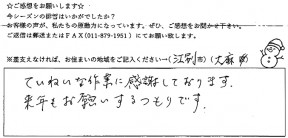 ☆ご感想をお願いします☆
今シーズンの排雪はいかがでしたか？
お客様の声が、私たちの原動力になっています。ぜひ、ご感想をお聞かせ下さい。
ご返信は郵送またはFAX（011-879-1951）にてお願い致します。
※差支えなければ、お住まいの地域をご記入ください→（江別市）（大麻 町）
ていねいな作業に感謝しております。
来年もお願いするつもりです。